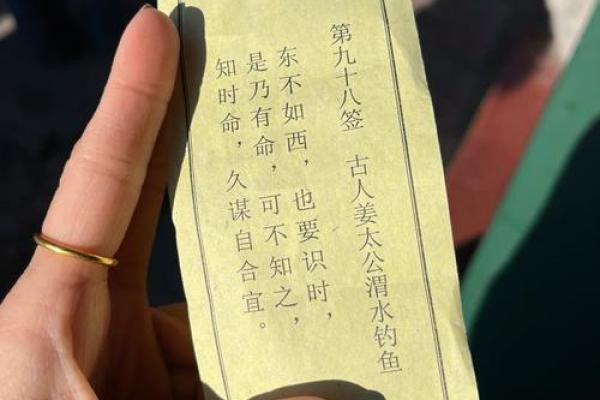 第九十八签 古人姜太公渭水钓鱼
东不如西，也要识时，
是乃有命，可不知之，
知时命，久谋自合宜。